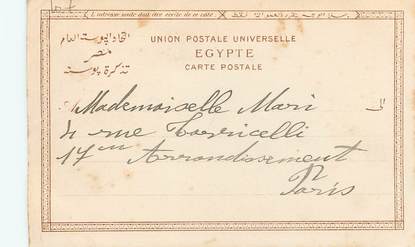 L'adresse seule doit être écrite de ce côté
UNION POSTALE UNIVERSELLE
EGYPTE
CARTE POSTALE
اتحاد البوستة العام
مصر
تذكرة بوستة
Mademoiselle Mari
4 rue Torricelli
17em Arrondissement
Paris